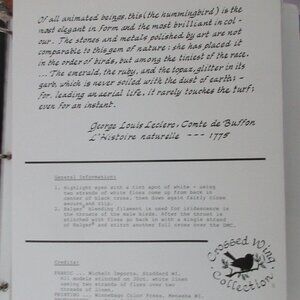 Of all animated beings, this (the hummingbird) is the
most elegant in form and the most brilliant in col-
our. The stones and metals polished by art are not
comparable to this gem of nature: she has placed it
in the order of birds, but among the tiniest of the race.
... The emerald, the ruby, and the topaz, glitter in its
garb, which is never soiled with the dust of earth; -
for, leading an aerial life, it rarely touches the turf;
even for an instant.
George Louis Leclerc, Comte de Buffon
L'Histoire naturelle --- 1775
General Information:
1. Highlight eyes with a tiny spot of white - using
two strands of white floss come up from back in
center of black cross, then down again fairly close;
secure and clip.
2. Balger blending filament is used for iridescence in
the throats of the male birds. After the throat is
stitched with floss go back in a single strand
of Balger and stitch another full cross over the DMC.
Credits:
FABRIC ... Wichelt Imports, Stoddard WI.
All models stitched on 30ct. worn linen
using two strands of floss over two
threads of linen.
PRINTING ... Winnebago Color Press, Menasha WI.
Crossed Wing
Collection